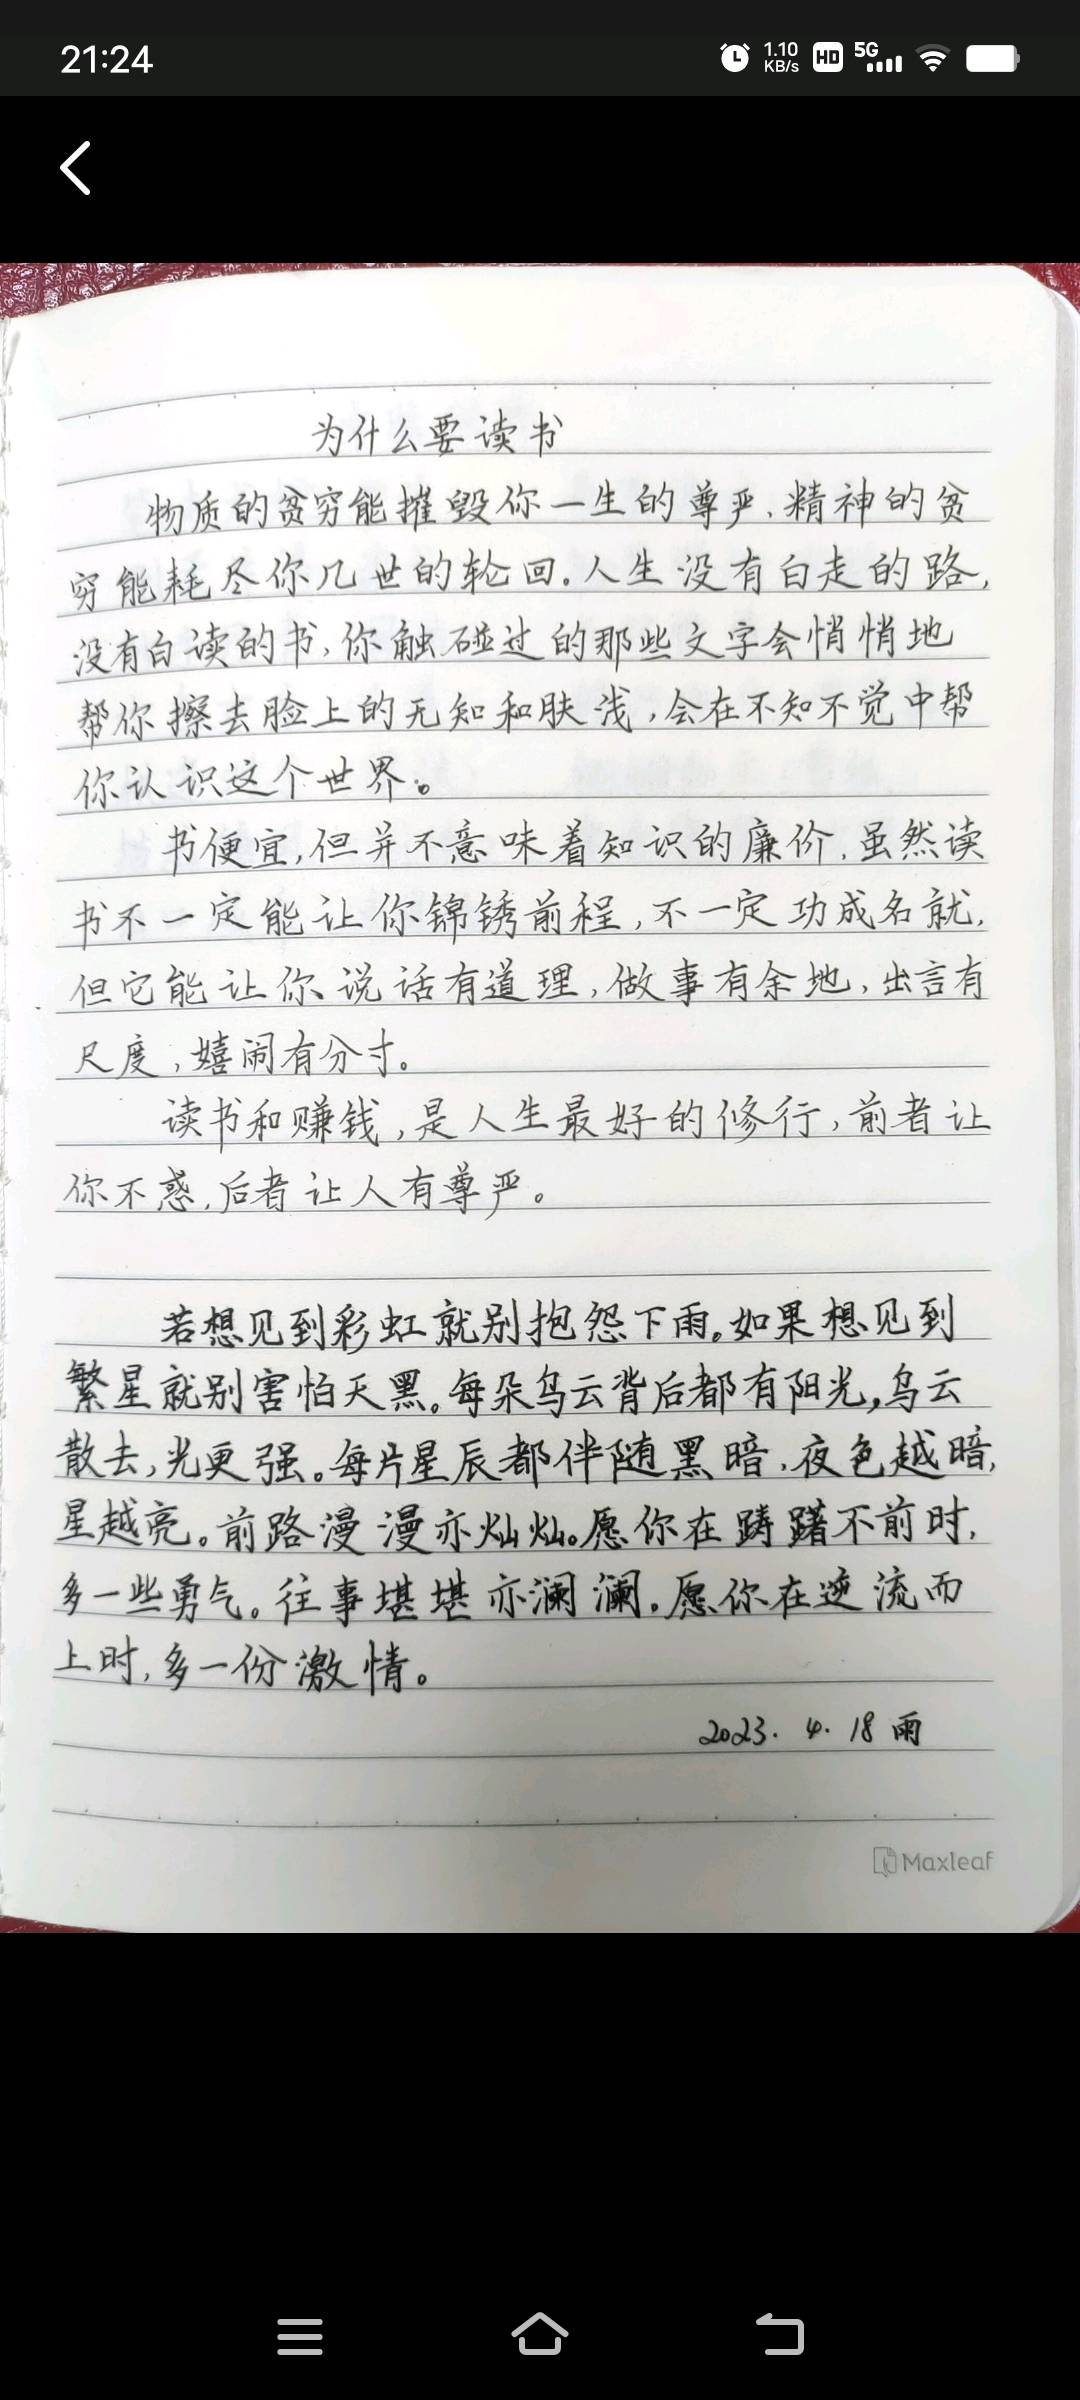 21:24
1.10 KB/s HD 5G
为什么要读书
物质的贫穷能摧毁你一生的尊严、精神的贫
穷能耗尽你几世的轮回。人生没有白走的路,
没有白读的书,你触碰过的那些文字会悄悄地
帮你擦去脸上的无知和肤浅,会在不知不觉中帮
你认识这个世界。
书便宜,但并不意味着知识的廉价,虽然读
书不一定能让你锦锈前程,不一定功成名就,
但它能让你说话有道理,做事有余地,出言有
尺度,嬉闹有分寸。
读书和赚钱,是人生最好的修行,前者让
你不惑,后者让人有尊严。
若想见到彩虹就别抱怨下雨。如果想见到
繁星就别害怕天黑。每朵乌云背后都有阳光,乌云
散去,光更强。每片星辰都伴随黑暗,夜色越暗,
星越亮。前路漫漫亦灿灿。愿你在踌躇不前时,
多一些勇气。往事堪堪亦澜澜。愿你在逆流而
上时,多一份激情。
2023.4.18雨
Maxleaf